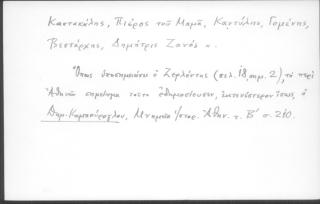 Καντακάλης, Πιέρος τοῦ Μαμῆ, Καντύλης, Γεμένης,
Βεστάρχης, Δημήτρις Ζανός κ.
Ὅπως ὑποσημαίνει ὁ Ζερλέντης (σελ. 18, σημ. 2), τὸ περὶ
Ἀθηνῶν σημείωμα τοῦτο ἐδημοσίευσεν, ἐκτενέστερον ἴσως, ὁ
Δημ. Καμπούρογλου, Μνημεῖα Ἱστορ. Ἀθην. τ. Β´ σ. 210.